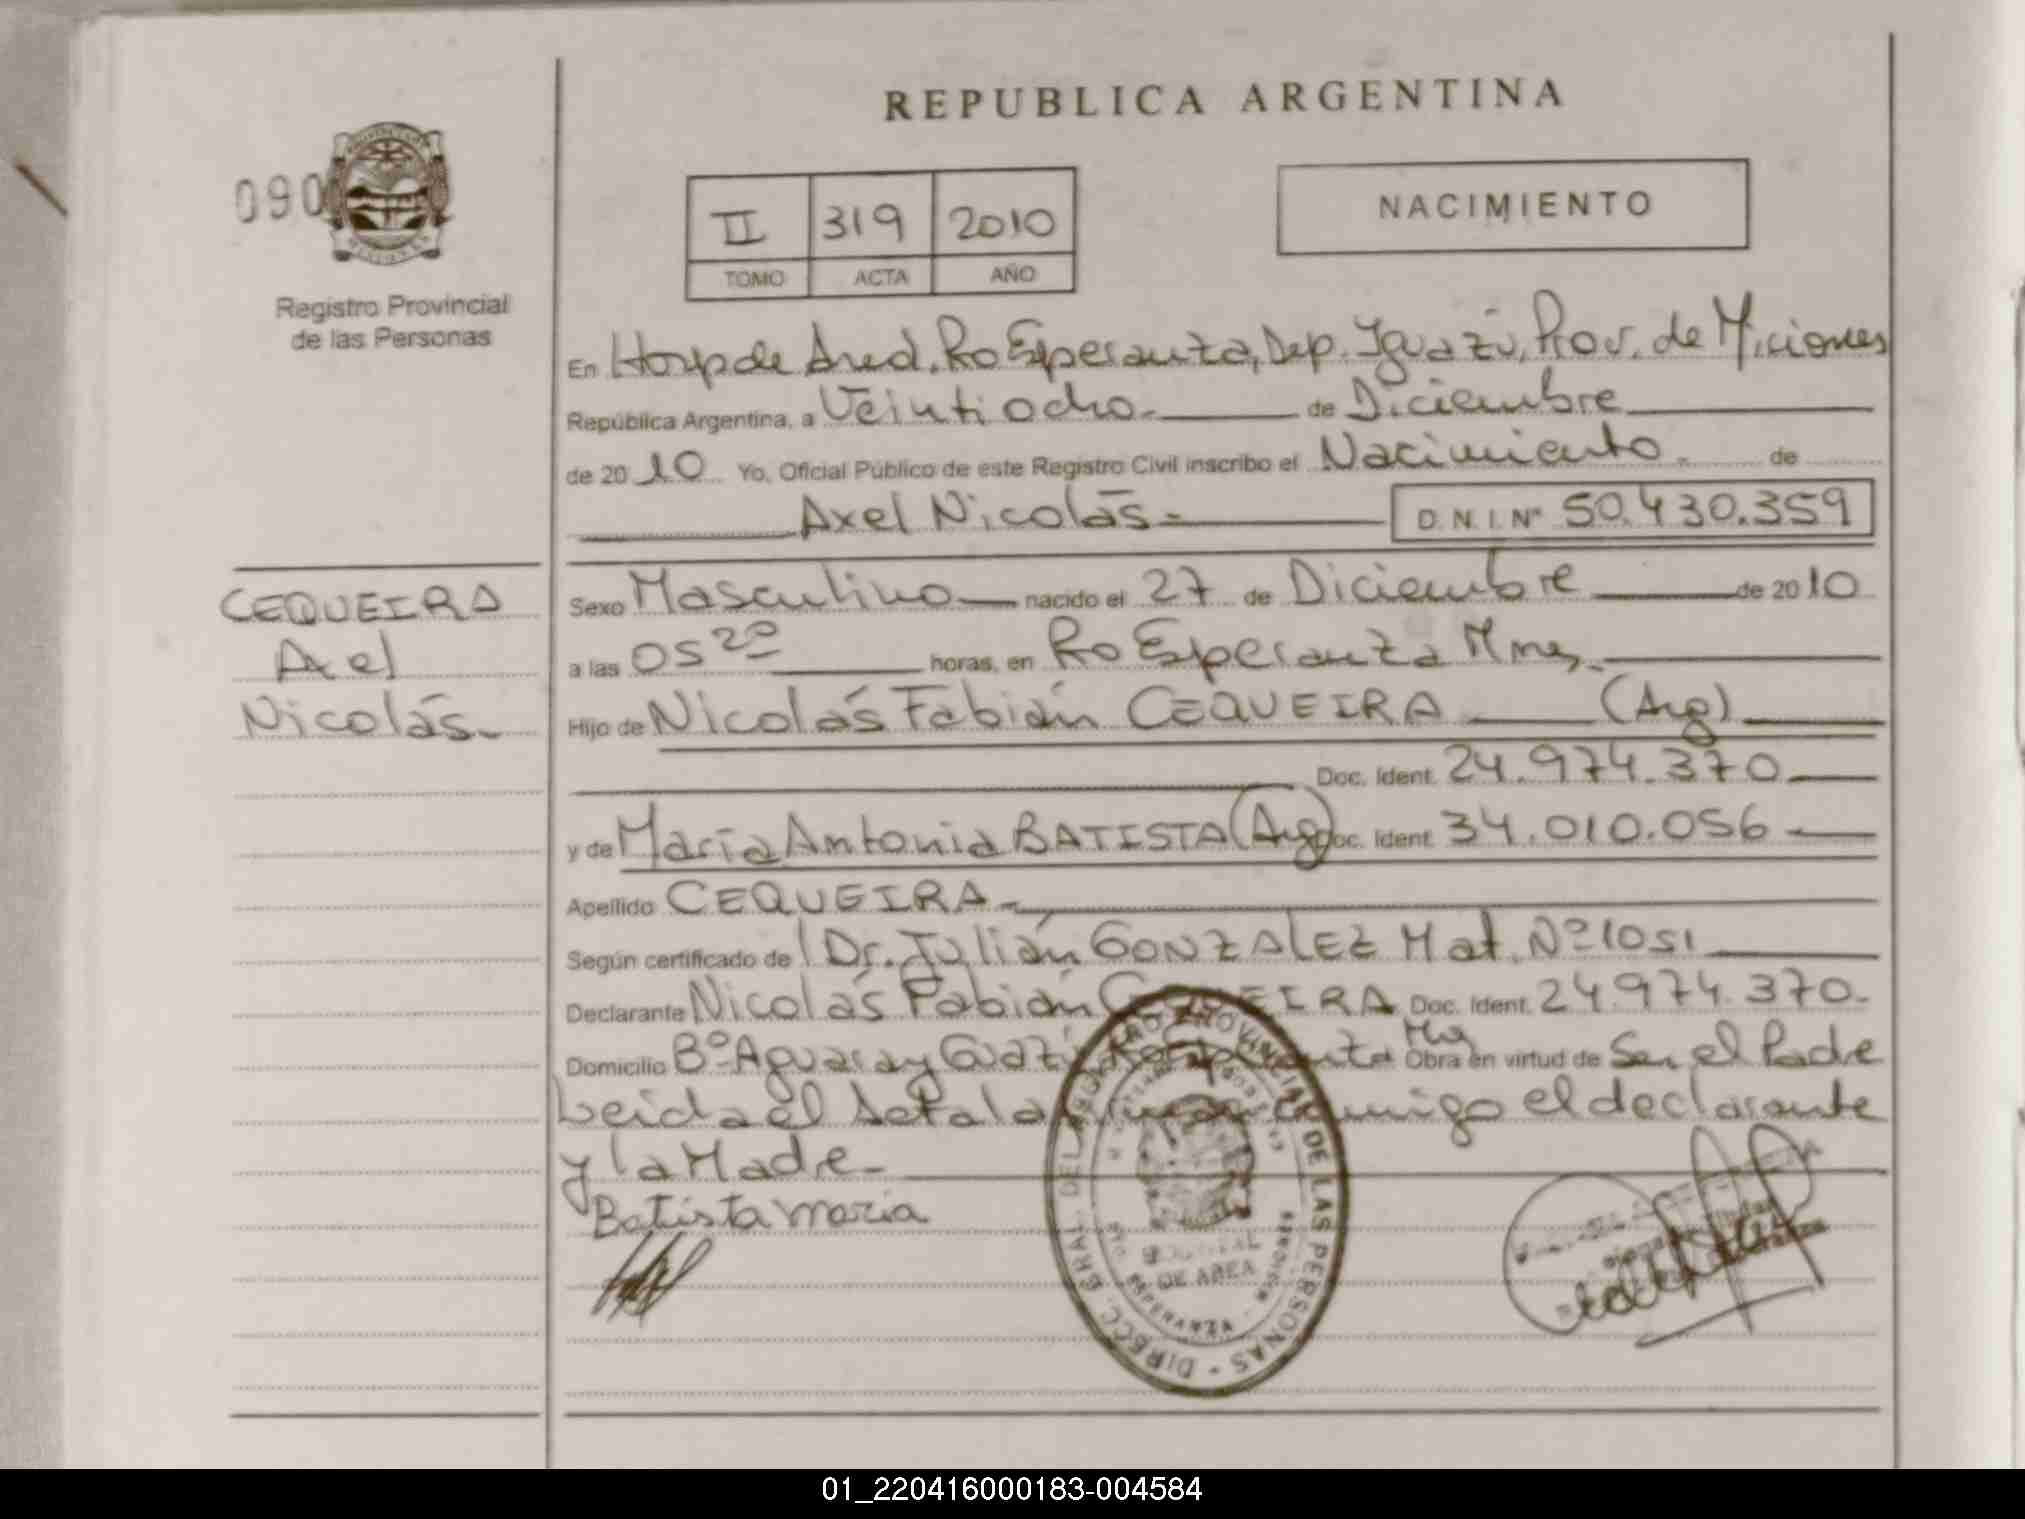 REPUBLICA ARGENTINA
090
II 319 2010
TOMO ACTA AÑO
NACIMIENTO
Registro Provincial
de las Personas
En Hosp de Ared. Pto Esperanza, Dep. Iguazú, Prov. de Miciones
República Argentina, a Veintiocho.- de Diciembre
de 2010 Yo, Oficial Público de este Registro Civil inscribo el Nacimiento. de
Axel Nicolás- D.N.I.Nº 50.430.359
CEQUEIRA
Axel
Nicolás-
Sexo Masculino nacido el 27 de Diciembre de 2010
a las 05 20 horas, en Pto Esperanza Mnes.
Hijo de Nicolás Fabián CEQUEIRA (Arg)
Doc. Ident. 24.974.370
y de María Antonia BATISTA (Arg) Doc. Ident. 34.010.056
Apellido CEQUEIRA-
Según certificado de Dr. Julián GONZALEZ Mat. Nº 1051
Declarante Nicolás Fabián CEQUEIRA Doc. Ident. 24.974.370-
Domicilio Bº Aguaray Guazú Pto Esperanza Obra en virtud de Ser el Padre
Leida el Acta la firman conmigo el declarante
y la Madre-
Batista maria
DIRECC. GRAL. DEL REGISTRO PROVINCIAL DE LAS PERSONAS
DE AREA
ESPERANZA - MISIONES
01_220416000183-004584